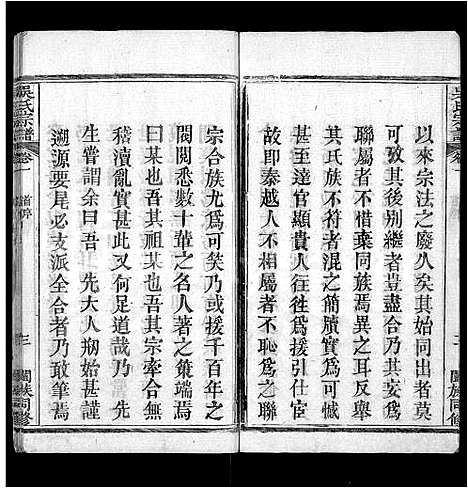 以來宗法之廢久矣其始同出者
也而後別繼者豈盡合乎非其
聯屬者不惜棄同族焉異之耳反舉
其氏族不符者混之簡牘實爲可憾
甚至達官貴人徃徃爲援引仕宦
不啻秦越人不相屬者不恥爲之聯
宗合族尤爲可矣乃或援千百年之
閥閱悉數十輩之名人著之策端焉
曰某也吾其祖某也吾其宗牽合無
稽瀆亂實甚又何足道哉乃 先
生嘗謂余曰吾 先大人剏始甚謹
遡源要尾必支派全合者乃敢筆焉
吳氏宗譜
卷一
首
三
闔族同修